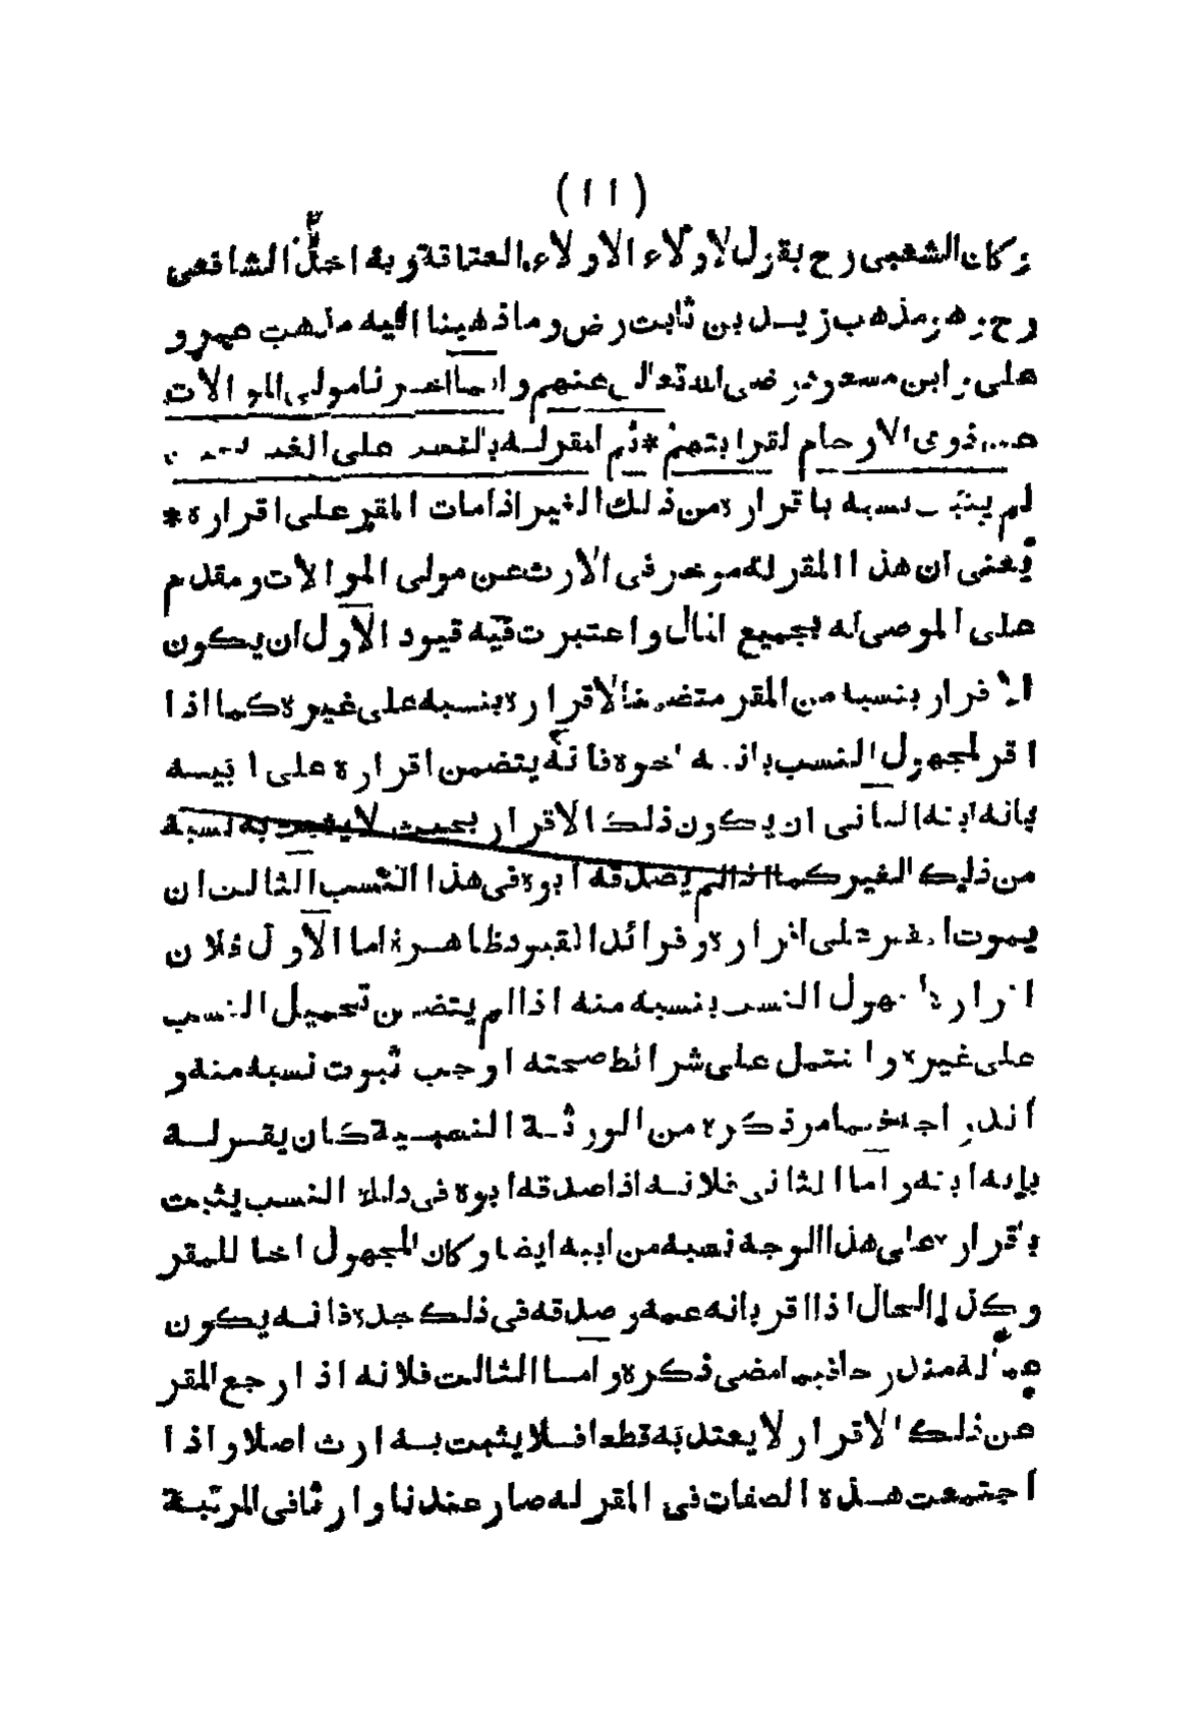 ( ١١ )
وكان الشعبى رح يقول لا ولاء الا ولاء العتاقة وبه اخذ الشافعى
رح وهو مذهب زيد بن ثابت رض وما ذهبنا اليه مذهب عمر و
على وابن مسعود رضى الله تعالى عنهم وانما اخرنا مولى الموالات
عن ذوى الارحام لقرابتهم * ثم المقر له بالنسب على الغير بحيث
لم يثبت نسبه باقراره من ذلك الغير اذا مات المقر على اقراره *
يعنى ان هذا المقر له موخر فى الارث عن مولى الموالات ومقدم
على الموصى له بجميع المال واعتبرت فيه قيود الاول ان يكون
الاقرار بنسبه من المقر متضمنا لاقراره بنسبه على غيره كما اذا
اقر لمجهول النسب بانه اخوه فانه يتضمن اقراره على ابيه
بانه ابنه الثانى ان يكون ذلك الاقرار بحيث لا يثبت به نسبه
من ذلك الغير كما اذا لم يصدقه ابوه فى هذا النسب الثالث ان
يموت المقر على اقراره وفوائد القيود ظاهرة اما الاول فلان
اقراره لمجهول النسب بنسبه منه اذا لم يتضمن تحميل النسب
على غيره واشتمل على شرائط صحته اوجب ثبوت نسبه منه و
اندراجه فيما مر ذكره من الورثة النسبية كان يقر له
بانه ابنه واما الثانى فلانه اذا صدقه ابوه فى ذلك النسب يثبت
باقراره على هذا الوجه نسبه من ابيه ايضا وكان المجهول اخا للمقر
وكذا الحال اذا اقر بانه عمه وصدقه فى ذلك جده فانه يكون
عما له مندرجا فيما مضى ذكره واما الثالث فلانه اذا رجع المقر
عن ذلك الاقرار لا يعتد به قطعا فلا يثبت به ارث اصلا واذا
اجتمعت هذه الصفات فى المقر له صار عندنا وارثا فى المرتبة